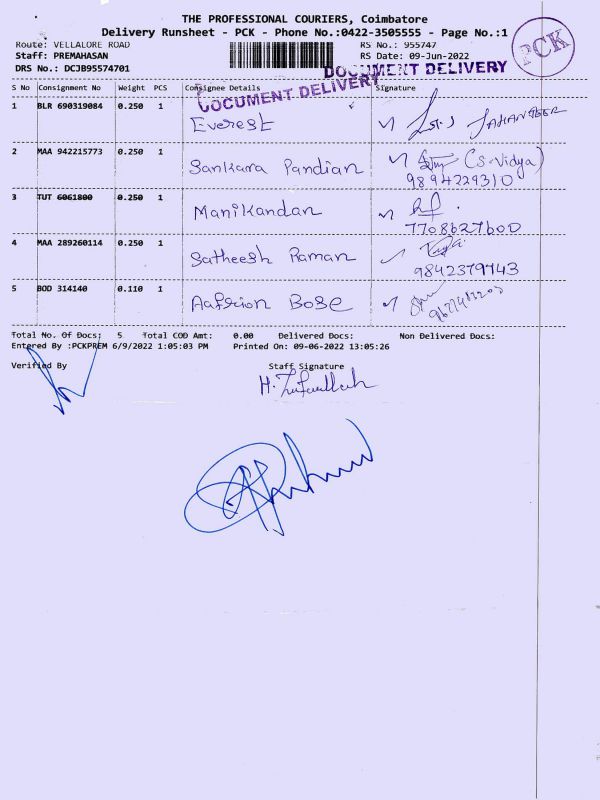 THE PROFESSIONAL COURIERS, Coimbatore
Delivery Runsheet - PCK - Phone No.:0422-3505555 - Page No.:1
Route: VELLALORE ROAD RS No.: 955747
Staff: PREMAHASAN RS Date: 09-Jun-2022
DRS No.: DCJB95574701
PCK
DOCUMENT DELIVERY
DOCUMENT DELIVERY
S No Consignment No Weight PCS Consignee Details Signature
1 BLR 690319084 0.250 1 Everest JAHANGEER
2 MAA 942215773 0.250 1 Sankara Pandian (S.Vidya)
9894229310
3 TUT 6061800 0.250 1 Manikandan
7708627600
4 MAA 289260114 0.250 1 Satheesh Raman
9842379743
5 BOD 314140 0.110 1 Bose
Total No. Of Docs: 5 Total COD Amt: 0.00 Delivered Docs: Non Delivered Docs:
Entered By :PCKPREM 6/9/2022 1:05:03 PM Printed On: 09-06-2022 13:05:26
Verified By Staff Signature